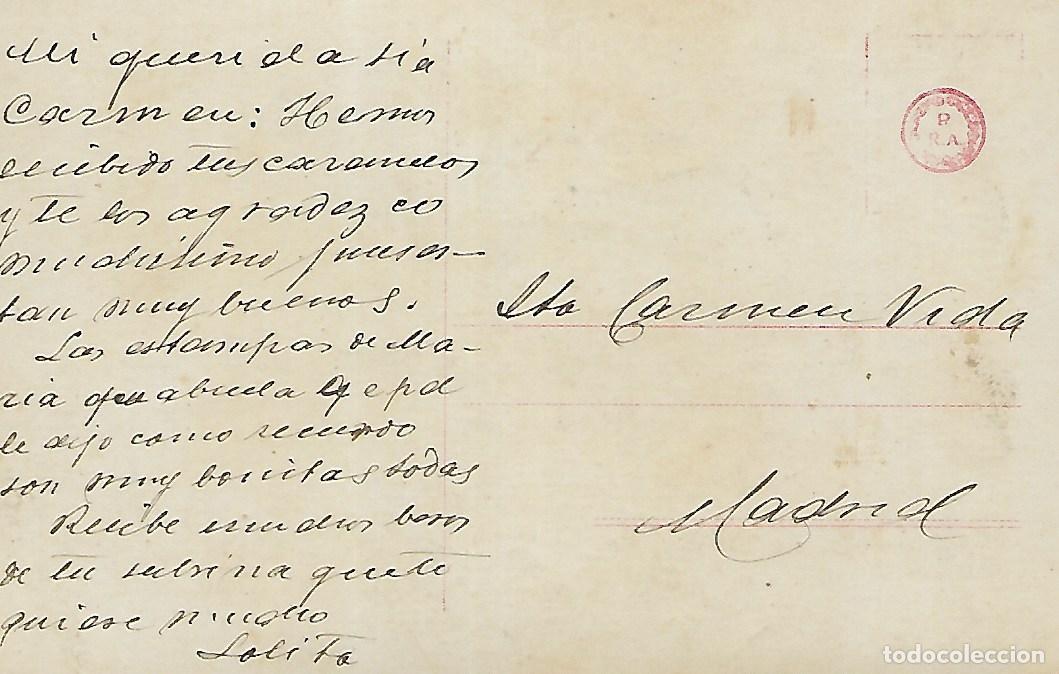 Mi querida tia
Carmen: Hemos
recibido tus caramelos
y te los agradezco
muchisimo pues es-
tan muy buenos.
Las estampas de Ma-
ria que abuela q e p d
le dijo como recuerdo
son muy bonitas todas
Recibe muchos besos
de tu sobrina que te
quiere mucho
Lolita
P
R.A.
Sta Carmen Vida
Madrid
todocoleccion